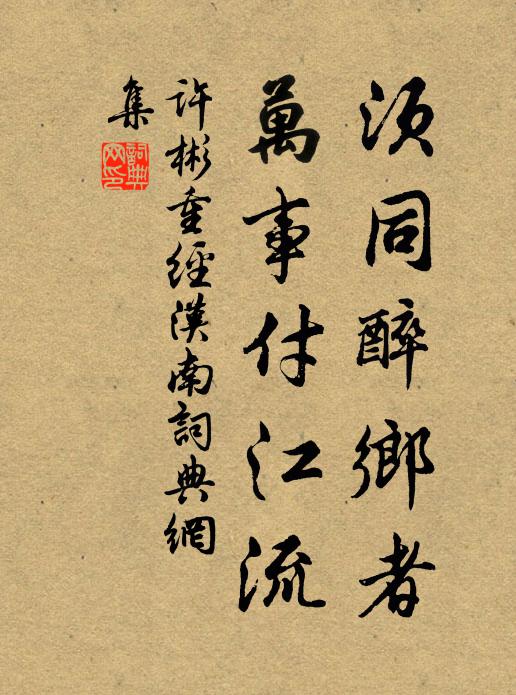 須同醉鄉者
萬事付江流
許彬重經漢南詞典網
集
詞典網印